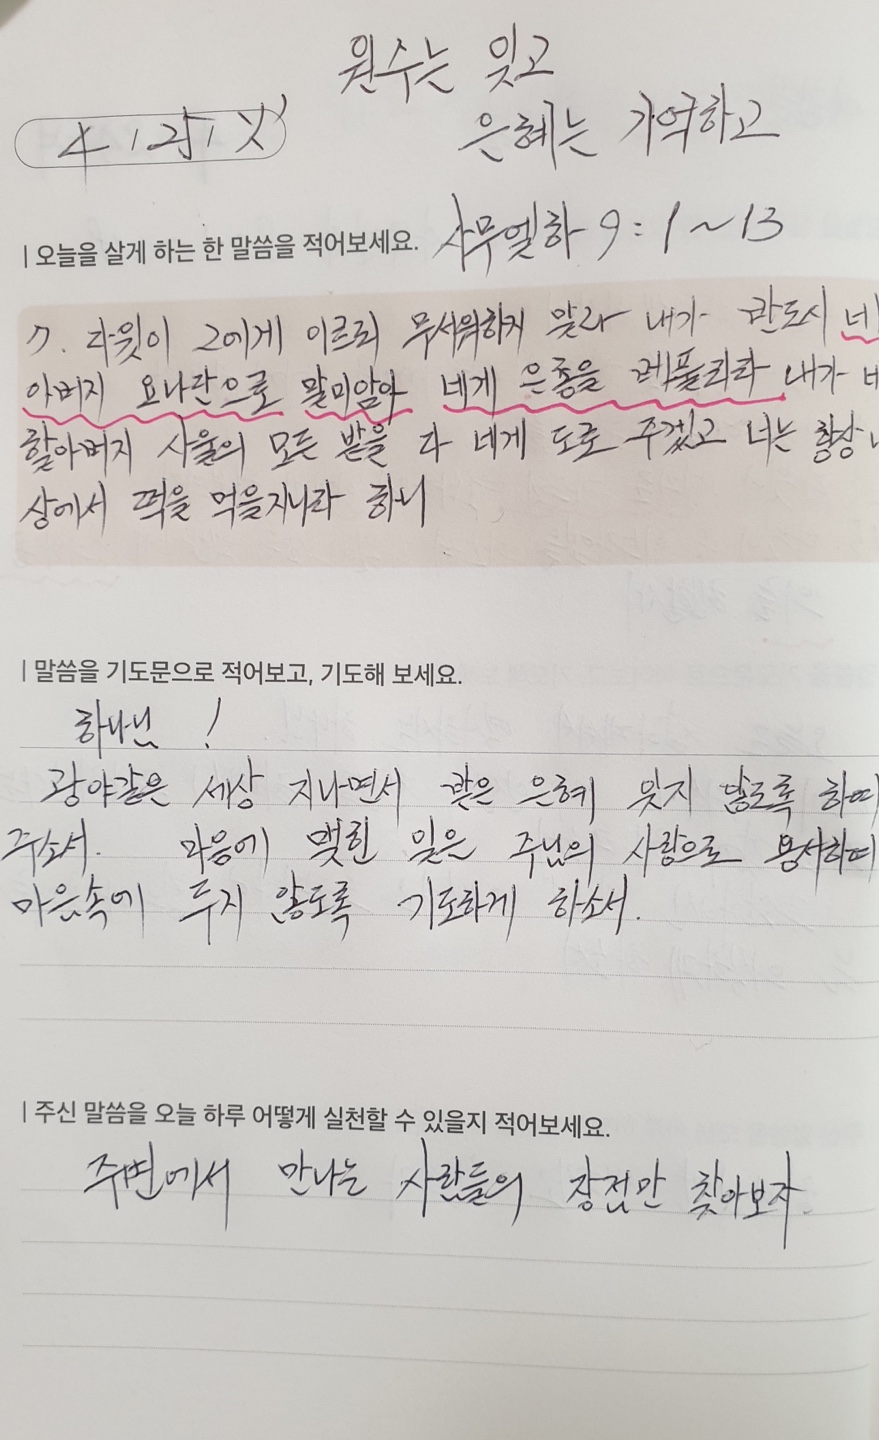 원수는 잊고
은혜는 기억하고
4 / 25 / 火
| 오늘을 살게 하는 한 말씀을 적어보세요. 사무엘하 9 : 1 ~ 13
7. 다윗이 그에게 이르되 무서워하지 말라 내가 반드시 네
아버지 요나단으로 말미암아 네게 은총을 베풀리라 내가 네
할아버지 사울의 모든 밭을 다 네게 도로 주겠고 너는 항상 내
상에서 떡을 먹을지니라 하니
| 말씀을 기도문으로 적어보고, 기도해 보세요.
하나님 !
광야같은 세상 지나면서 받은 은혜 잊지 않도록 하여
주소서. 마음에 맺힌 일은 주님의 사랑으로 용서하며
마음속에 두지 않도록 기도하게 하소서.
| 주신 말씀을 오늘 하루 어떻게 실천할 수 있을지 적어보세요.
주변에서 만나는 사람들의 장점만 찾아보자.